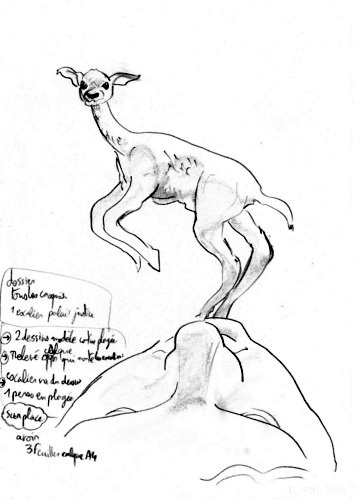 dossier
tous les croquis
1 escalier palais justice
→ 2 dessins modèle contre plongée
oblique
→ relevé qui monte
→ escalier vu du dessus
1 perso en plongée
sur place
avoir
3 Feuilles calque A4